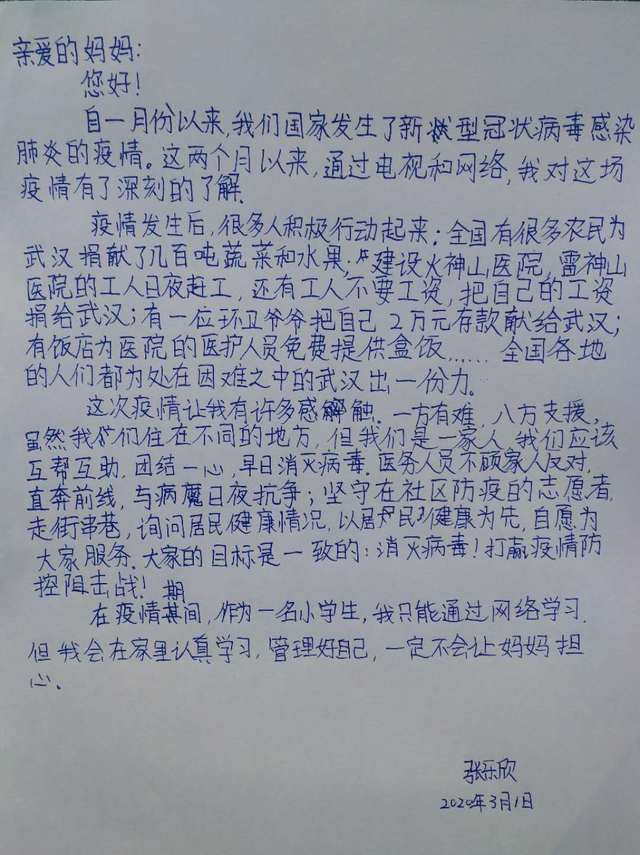 亲爱的妈妈:
您好!
自一月份以来,我们国家发生了新型冠状病毒感染
肺炎的疫情。这两个月以来,通过电视和网络,我对这场
疫情有了深刻的了解.
疫情发生后,很多人积极行动起来:全国有很多农民为
武汉捐献了几百吨蔬菜和水果;建设火神山医院,雷神山
医院的工人日夜赶工,还有工人不要工资,把自己的工资
捐给武汉;有一位环卫爷爷把自己2万元存款献给武汉;
有饭店为医院的医护人员免费提供盒饭......全国各地
的人们都为处在困难之中的武汉出一份力.
这次疫情让我有许多感触.一方有难,八方支援,
虽然我们住在不同的地方,但我们是一家人,我们应该
互帮互助.团结一心,早日消灭病毒.医务人员不顾家人反对,
直奔前线,与病魔日夜抗争;坚守在社区防疫的志愿者,
走街串巷,询问居民健康情况,以居民健康为先,自愿为
大家服务.大家的目标是一致的:消灭病毒!打赢疫情防
控阻击战!
在疫情期间,作为一名小学生,我只能通过网络学习.
但我会在家里认真学习,管理好自己,一定不会让妈妈担
心.
张乐欣
2020年3月1日